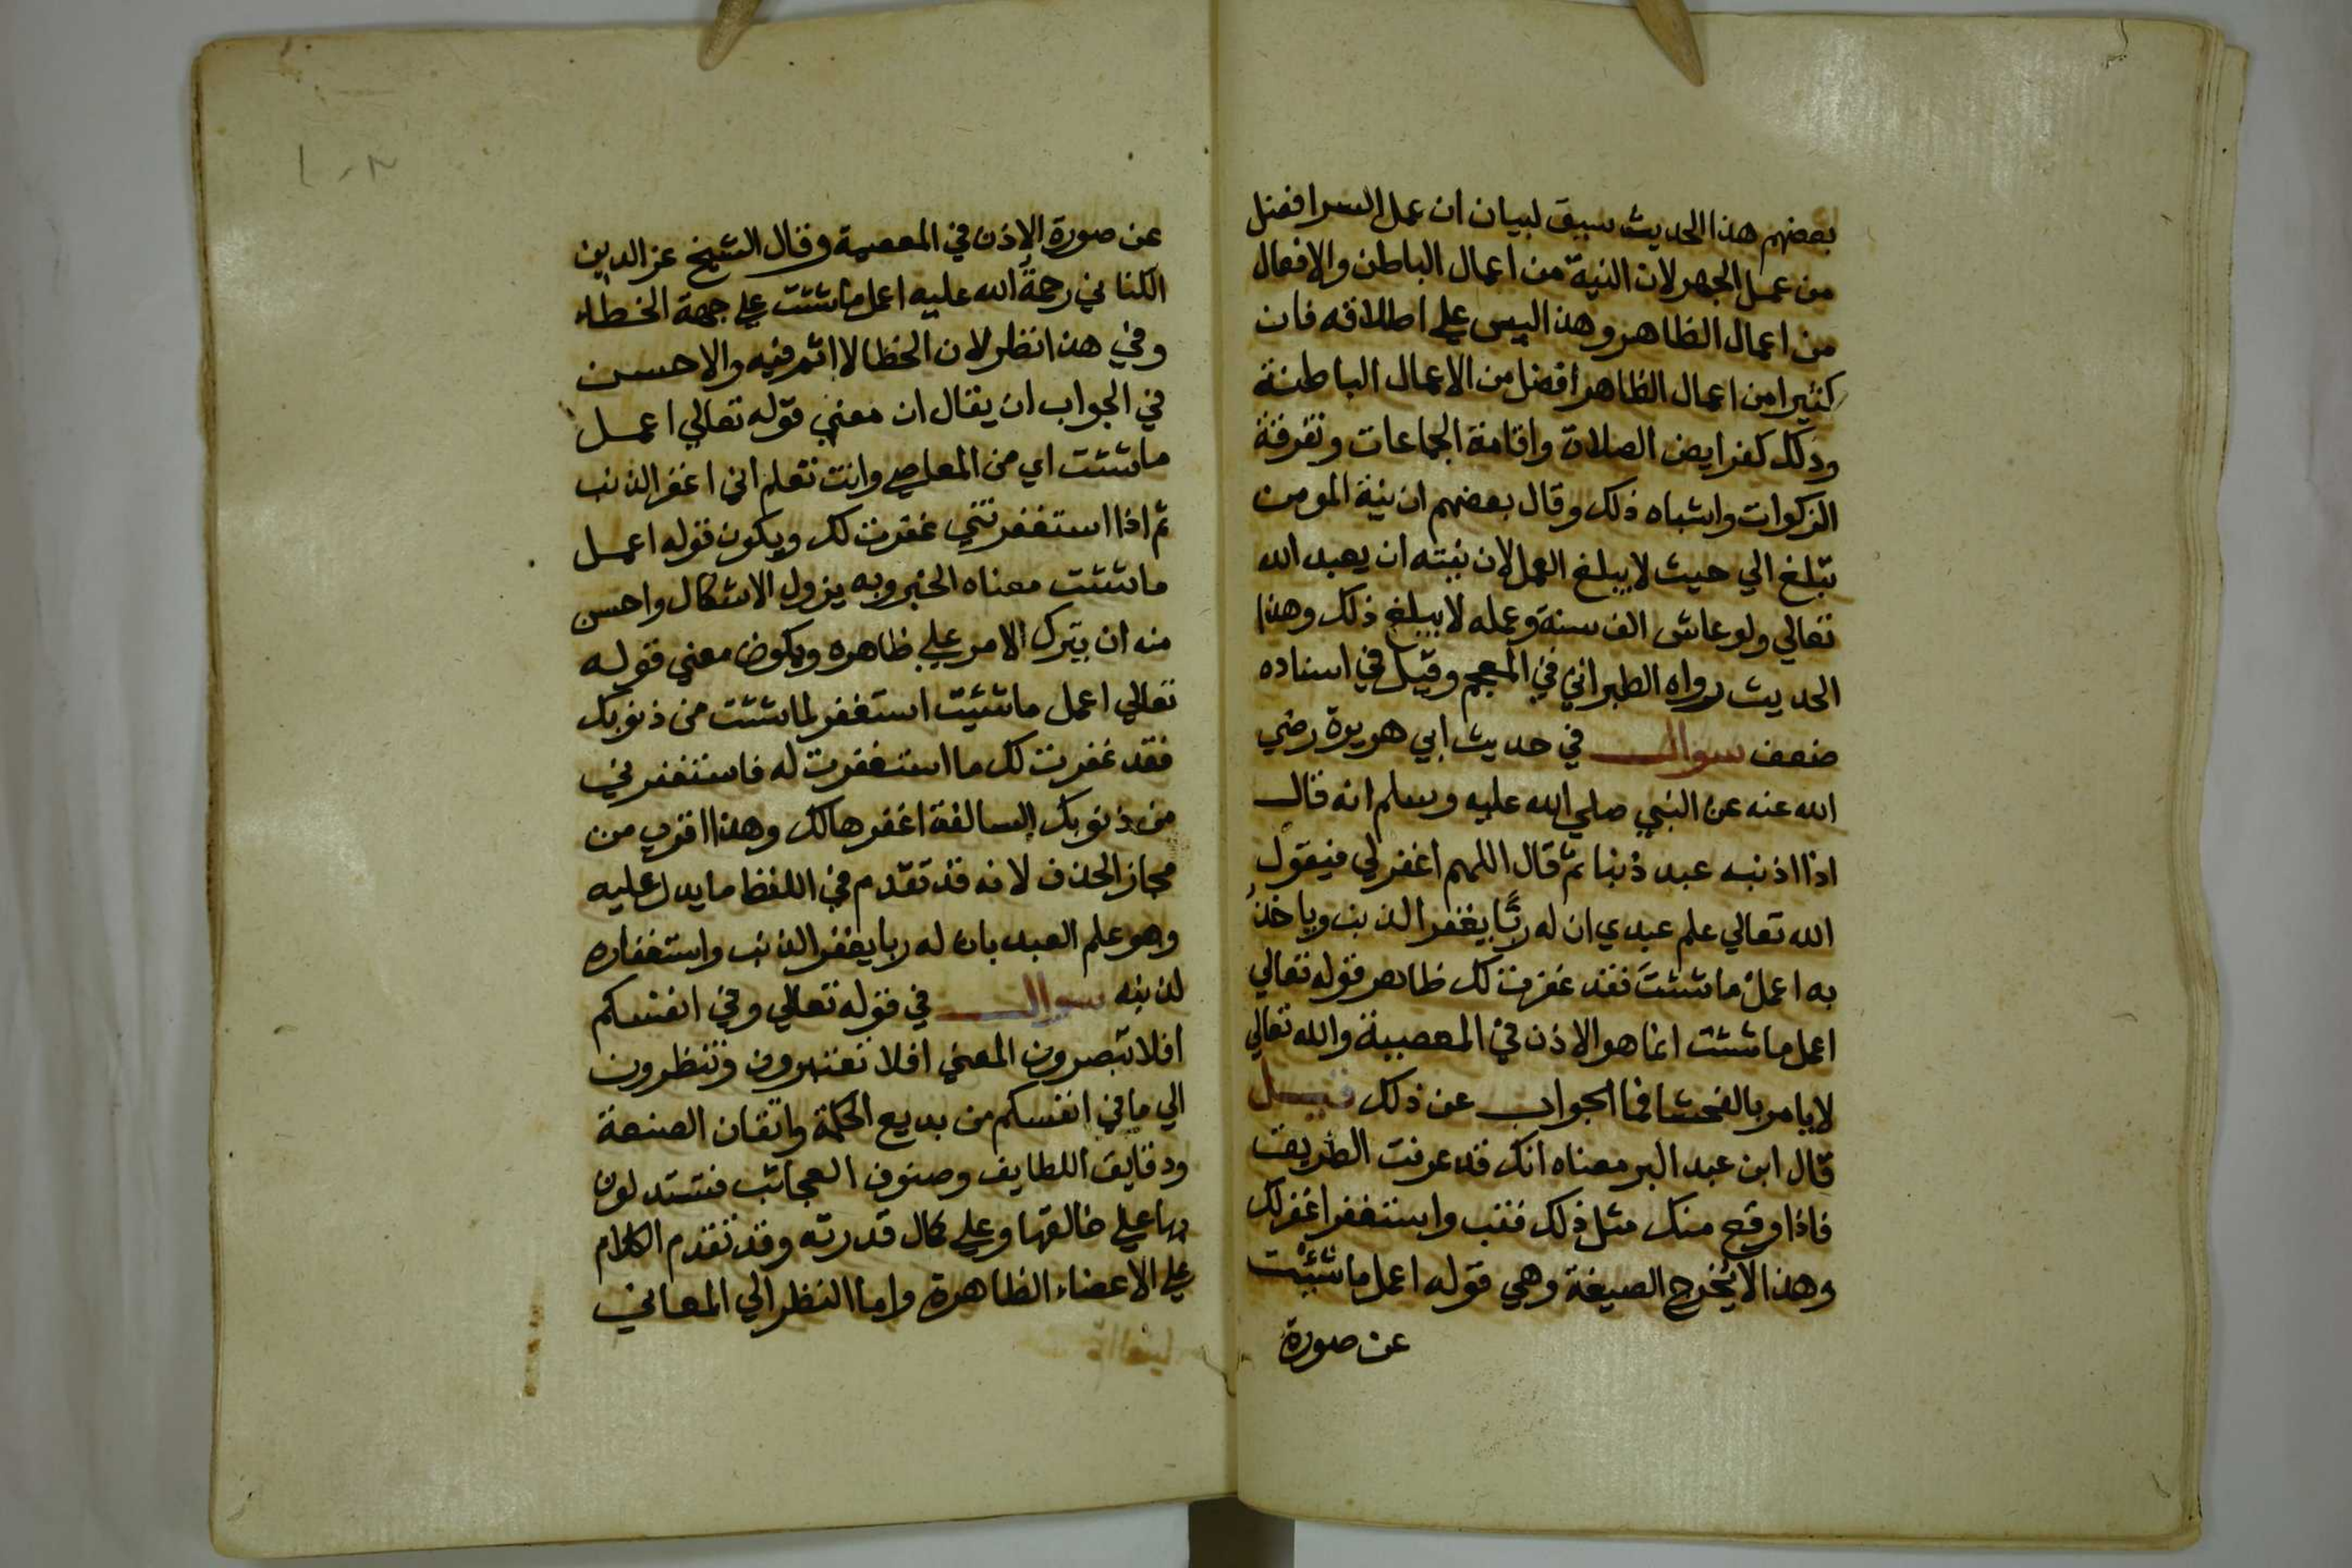 بعضهم هذا الحديث سيق لبيان ان عمل السر افضل
من عمل الجهر لان النية من اعمال الباطن والافعال
من اعمال الظاهر وهذا ليس علي اطلاقه فان
كثيرا من اعمال الظاهر افضل من الاعمال الباطنة
وذلك كفرايض الصلاة واقامة الجماعات وتفرقة
الزكوات واشباه ذلك وقال بعضهم ان نية المومن
تبلغ الي حيث لا يبلغ العمل لان نيته ان يعبد الله
تعالي ولو عاش الف سنة وعمله لا يبلغ ذلك وهذا
الحديث رواه الطبراني في المعجم وقيل في اسناده
ضعف سوال في حديث ابي هريرة رضي
الله عنه عن النبي صلي الله عليه وسلم انه قال
اذا اذنب عبد ذنبا ثم قال اللهم اغفرلي فيقول
الله تعالي علم عبدي ان له ربًّا يغفر الذنب وياخذ
به اعمل ما شئت فقد غفرت لك ظاهر قوله تعالي
اعمل ما شئت انما هو الاذن في المعصية والله تعالي
لا يامر بالفحشا فما الجواب عن ذلك قيل
قال ابن عبد البر معناه انك قد عرفت الطريق
فاذا وقع منك مثل ذلك فتب واستغفر اغفرلك
وهذا لا يخرج الصيغة وهي قوله اعمل ما شئت
عن صورة
عن صورة الاذن في المعصية وقال الشيخ عز الدين
الكناني رحمة الله عليه اعمل ما شئت علي جهة الخطاء
وفي هذا نظر لان الخطا لا اثم فيه والاحسن
في الجواب ان يقال ان معني قوله تعالي اعمل
ما شئت اي من المعاصي وانت تعلم اني اغفر الذنب
ثم اذا استغفرتني غفرت لك ويكون قوله اعمل
ما شئت معناه الخبر وبه يزول الاشكال واحسن
منه ان يترك الامر علي ظاهره ويكون معني قوله
تعالي اعمل ما شئت استغفر لما شئت من ذنوبك
فقد غفرت لك ما استغفرت له فاستغفرني
من ذنوبك السالفة اغفرها لك وهذا اقرب من
مجاز الحذف لانه قد تقدم في اللفظ ما يدل عليه
وهو علم العبد بان له ربا يغفر الذنب واستغفاره
لذنبه سوال في قوله تعالي وفي انفسكم
افلا تبصرون المعني افلا تعتبرون وتنظرون
الي ما في انفسكم من بديع الحكمة واتقان الصنعة
ودقايق اللطايف وصنوف العجائب فتستدلون
بها علي خالقها وعلي كمال قدرته وقد تقدم الكلام
علي الاعضاء الظاهرة واما النظر الي المعاني